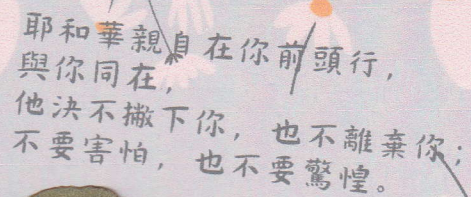 耶和華親自在你前頭行，
與你同在，
他決不撇下你，也不離棄你；
不要害怕，也不要驚惶。